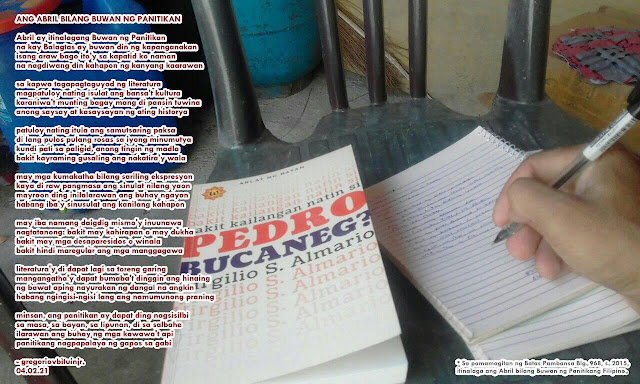 ANG ABRIL BILANG BUWAN NG PANITIKAN
Abril ay itinalagang Buwan ng Panitikan
na kay Balagtas ay buwan din ng kapanganakan
isang araw bago ito'y sa kapatid ko naman
na nagdiwang din kahapon ng kanyang kaarawan
sa kapwa tagapagtaguyod ng literatura
magpatuloy nating isulat ang bansa't kultura
karaniwa't munting bagay mang di pansin tuwina
anong saysay at kasaysayan ng ating historya
patuloy nating itula ang samutsaring paksa
di lang pulos pulang rosas sa iyong minumutya
kundi pati sa paligid, anong tingin ng madla
bakit kayraming gusaling ang nakatira y wala
may mga kumakatha bilang sariling ekspresyon
kaya di raw pangmasa ang sinulat nilang yaon
mayroon ding inilalarawan ang buhay ngayon
habang iba'y sinusulat ang kanilang kahapon
may iba namang daigdig mismo'y inuunawa
nagtatanong: bakit may kahirapan o may dukha
bakit may mga desaparesidos o winala
bakit hindi maregular ang mga manggagawa
literatura'y di dapat lagi sa toreng garing
mangangatha'y dapat bumaba't dinggin ang hinaing
ng bawat aping nayurakan ng dangal na angkin
habang ngingisi-ngisi lang ang namumunong praning
minsan, ang panitikan ay dapat ding nagsisilbi
sa masa, sa bayan, sa lipunan, di sa salbahe
ilarawan ang buhay ng mga kawawa't api
panitikang nagpapalaya ng gapos sa gabi
- gregoriovbituinjr.
04.02.21
AKLAT NG BAYAN
Bakit kailangan natin si
PEDRO
BUCANEG?
Virgilio S. Almario
* Sa pamamagitan ng Batas Pambansa Blg. 968, s. 2015,
itinalaga ang Abril bilang Buwan ng Panitikang Filipino.